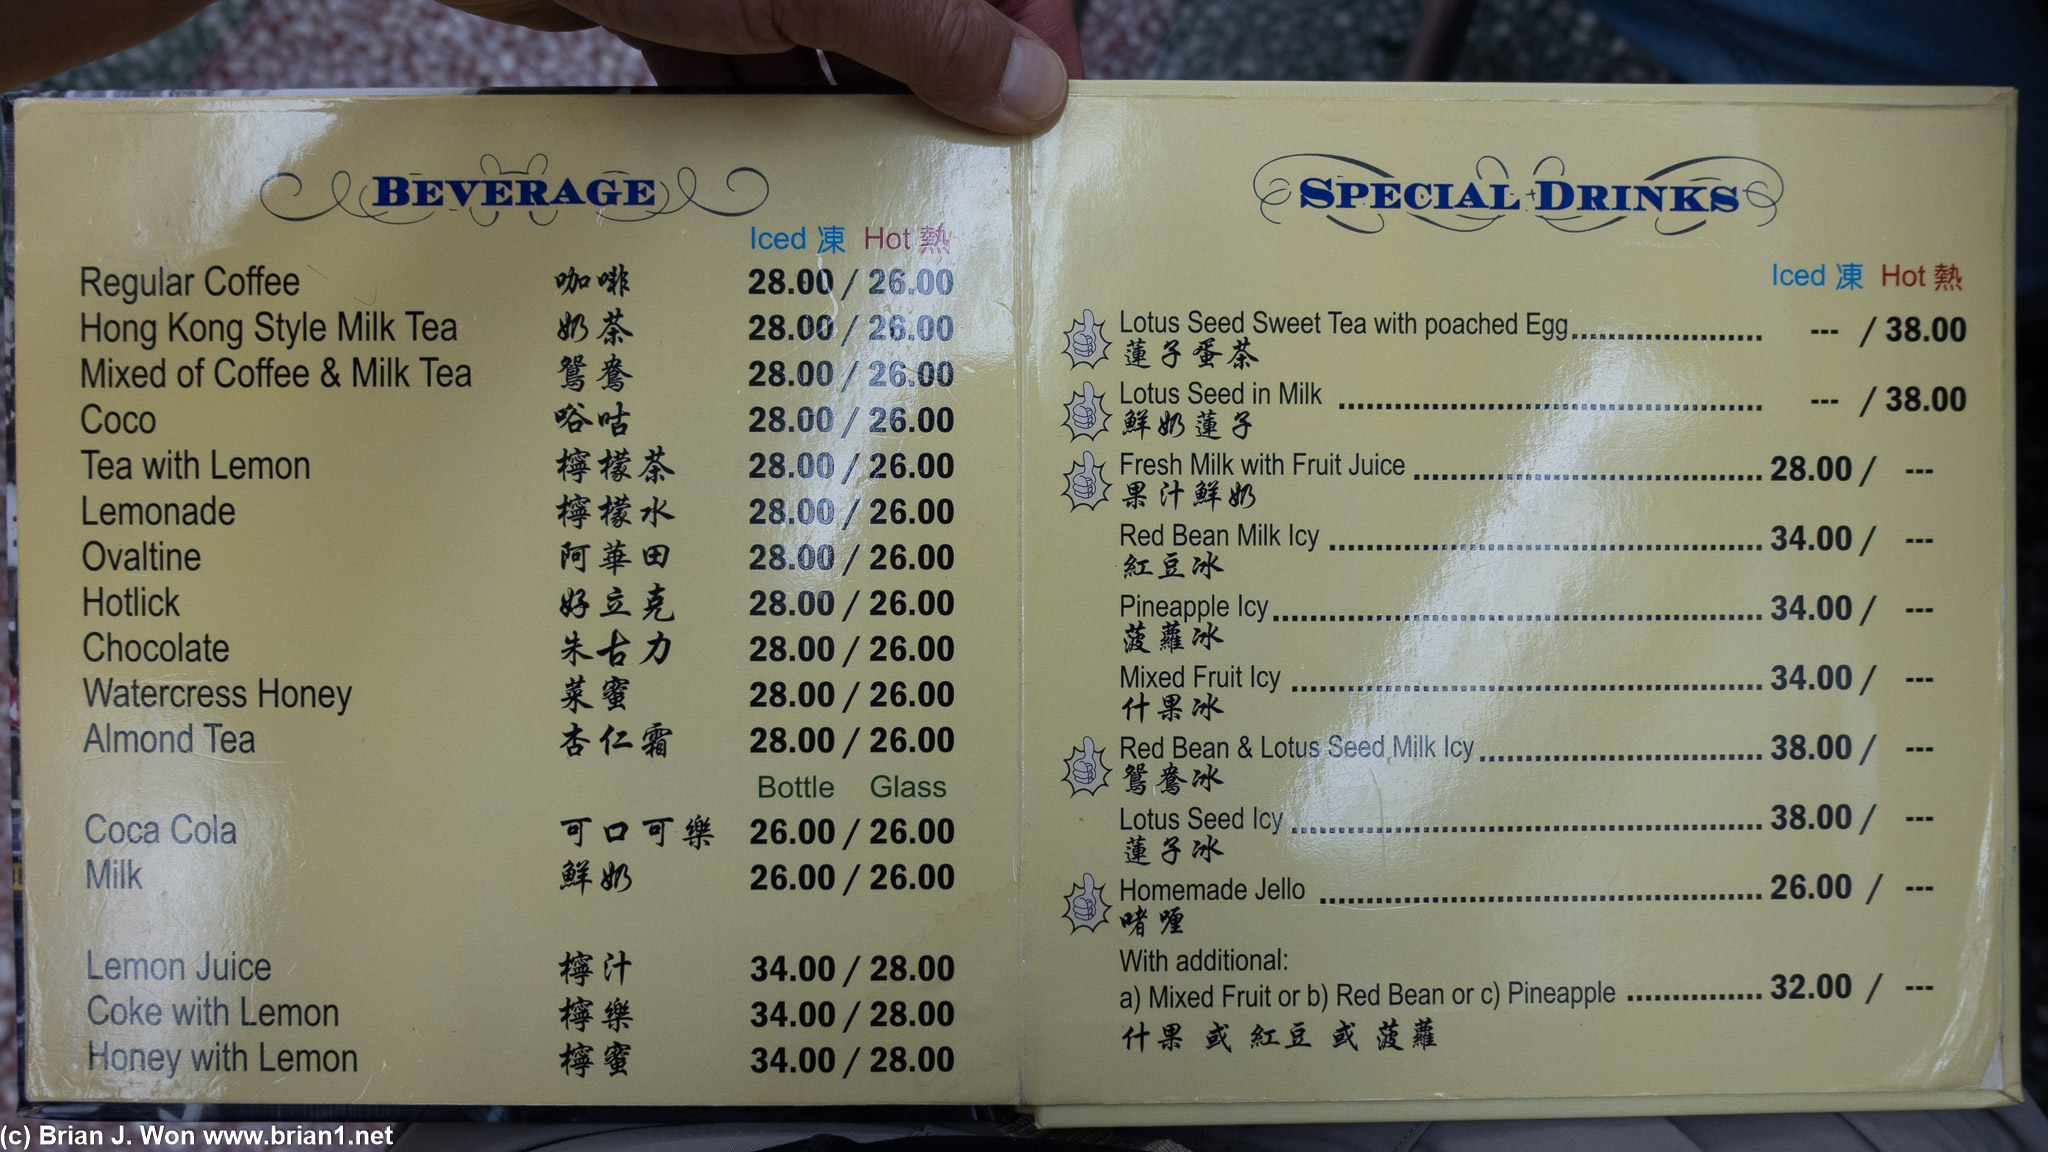 BEVERAGE
Iced 凍 Hot 熱
Regular Coffee 咖啡 28.00 / 26.00
Hong Kong Style Milk Tea 奶茶 28.00 / 26.00
Mixed of Coffee & Milk Tea 鴛鴦 28.00 / 26.00
Coco 唂咕 28.00 / 26.00
Tea with Lemon 檸檬茶 28.00 / 26.00
Lemonade 檸檬水 28.00 / 26.00
Ovaltine 阿華田 28.00 / 26.00
Hotlick 好立克 28.00 / 26.00
Chocolate 朱古力 28.00 / 26.00
Watercress Honey 菜蜜 28.00 / 26.00
Almond Tea 杏仁霜 28.00 / 26.00
Bottle Glass
Coca Cola 可口可樂 26.00 / 26.00
Milk 鮮奶 26.00 / 26.00
Lemon Juice 檸汁 34.00 / 28.00
Coke with Lemon 檸樂 34.00 / 28.00
Honey with Lemon 檸蜜 34.00 / 28.00
SPECIAL DRINKS
Iced 凍 Hot 熱
Lotus Seed Sweet Tea with poached Egg --- / 38.00
蓮子蛋茶
Lotus Seed in Milk --- / 38.00
鮮奶蓮子
Fresh Milk with Fruit Juice 28.00 / ---
果汁鮮奶
Red Bean Milk Icy 34.00 / ---
紅豆冰
Pineapple Icy 34.00 / ---
菠蘿冰
Mixed Fruit Icy 34.00 / ---
什果冰
Red Bean & Lotus Seed Milk Icy 38.00 / ---
鴛鴦冰
Lotus Seed Icy 38.00 / ---
蓮子冰
Homemade Jello 26.00 / ---
啫喱
With additional:
a) Mixed Fruit or b) Red Bean or c) Pineapple 32.00 / ---
什果 或 紅豆 或 菠蘿
(c) Brian J. Won www.brian1.net